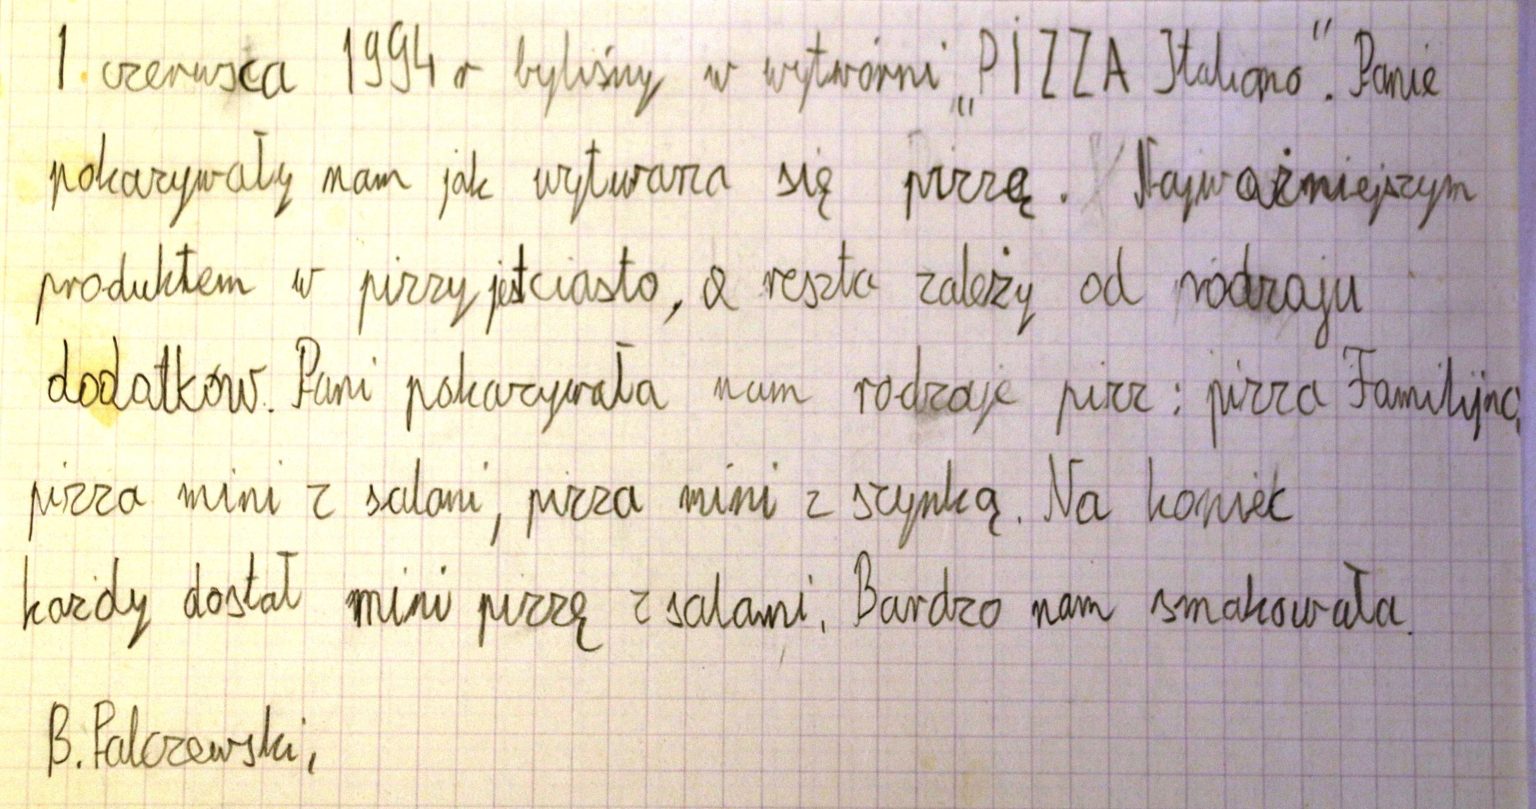 1 czerwsca 1994 r byliśmy w wytwórni „PIZZA Italiano”. Panie
pokazywały nam jak wytwarza się pizzę. Najważniejszym
produktem w pizzy jest ciasto, a reszta zależy od rodzaju
dodatków. Pani pokazywała nam rodzaje pizz: pizza Familijna,
pizza mini z salami, pizza mini z szynką. Na koniec
każdy dostał mini pizzę z salami. Bardzo nam smakowała.
B. Palczewski,